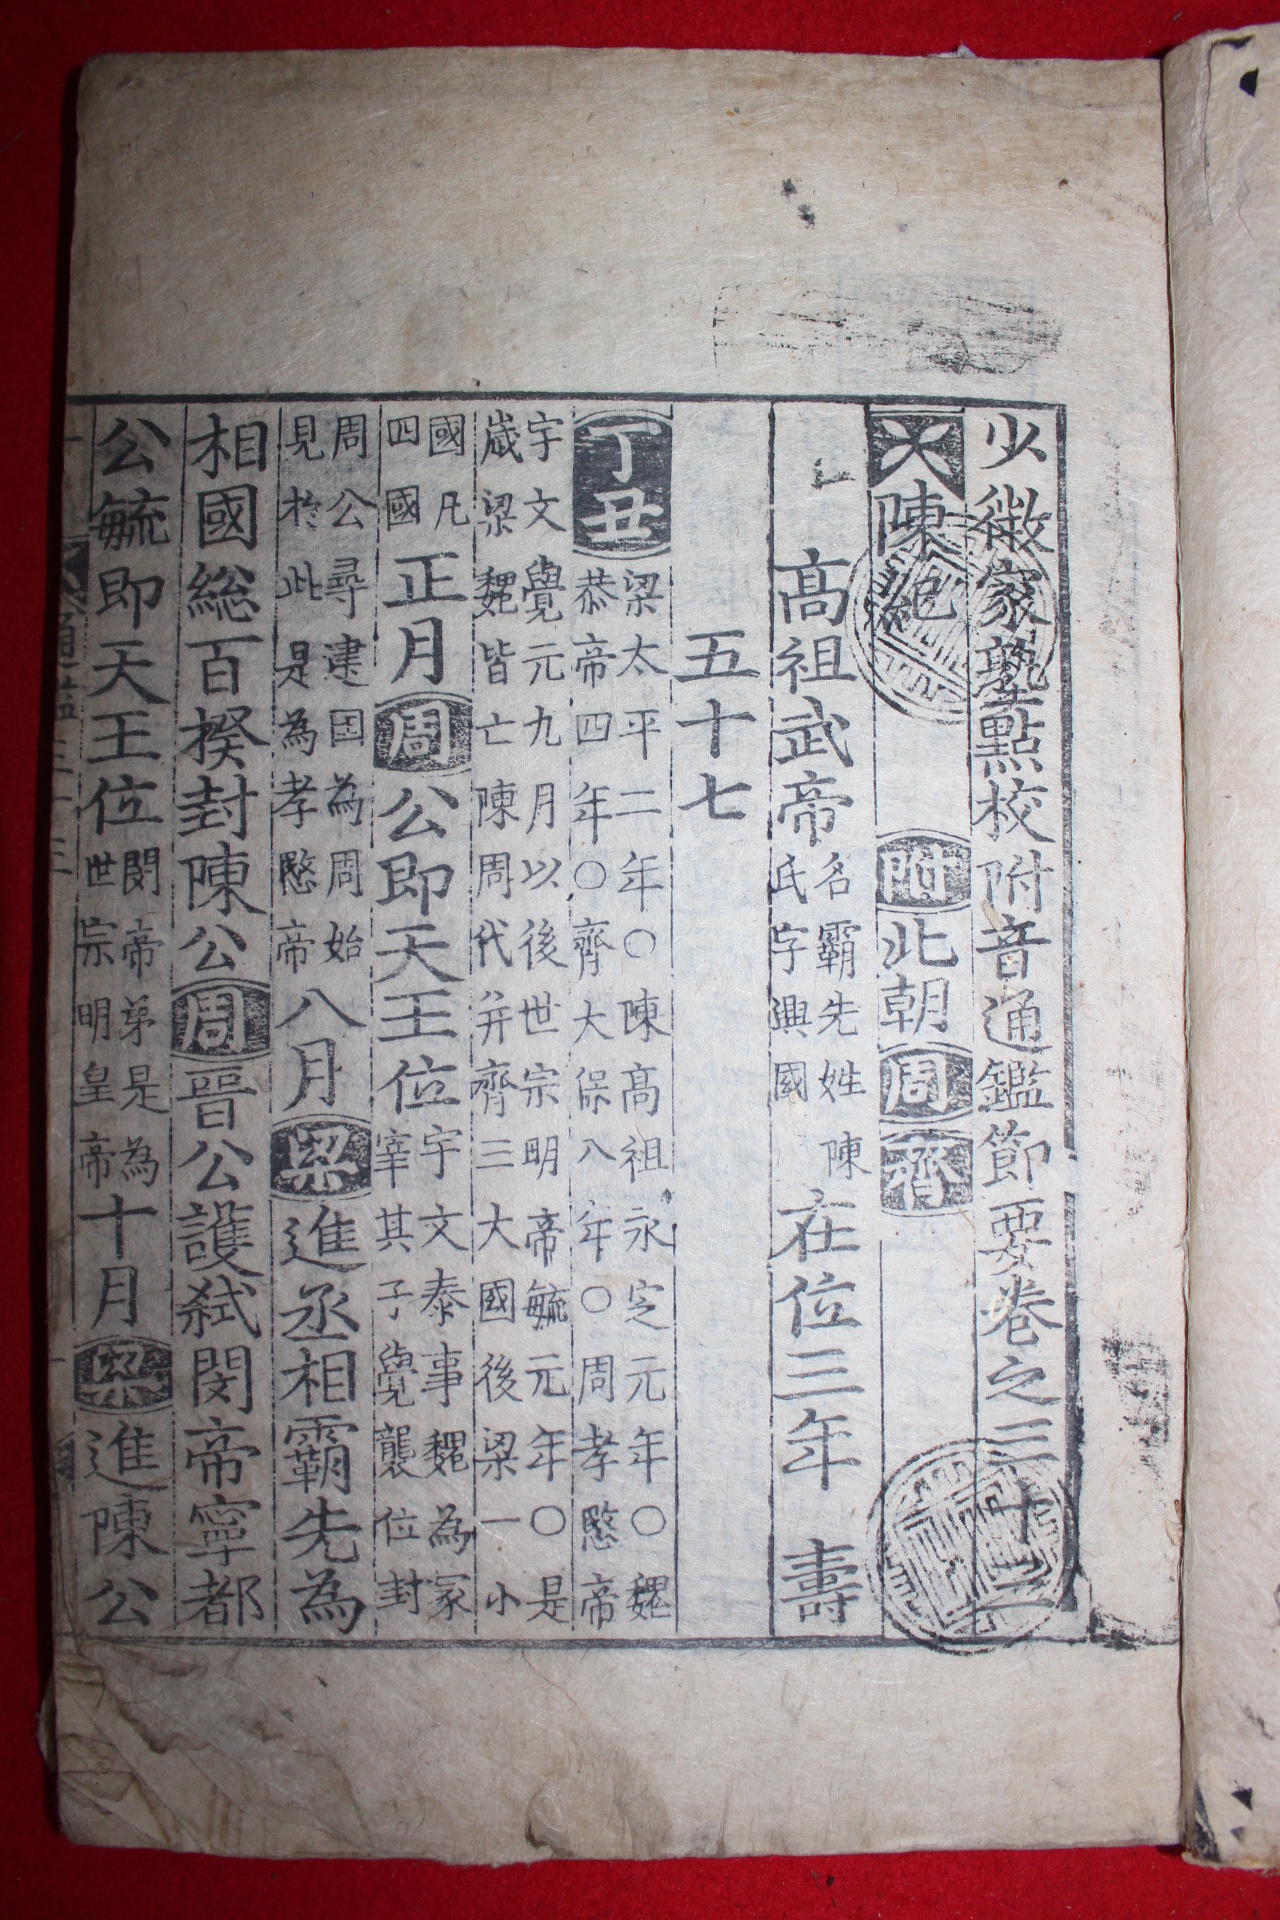 少微家塾點校附音通鑑節要卷之三十三
陳紀 附北朝周齊
高祖武帝名霸先姓陳氏字興國在位三年 壽
五十七
丁丑梁太平二年○陳高祖永定元年○魏恭帝四年○齊大保八年○周孝愍帝
宇文覺元九月以後世宗明帝毓元年○是歲梁魏皆亡陳周代并齊三大國後梁一小
國凡四國正月周公即天王位宇文泰事魏為冢宰其子覺襲位封
周公尋建国為周始見於此是為孝愍帝八月梁進丞相霸先為
相國総百揆封陳公周晉公護弑閔帝寧都
公毓即天王位閔帝弟是為世宗明皇帝十月梁進陳公